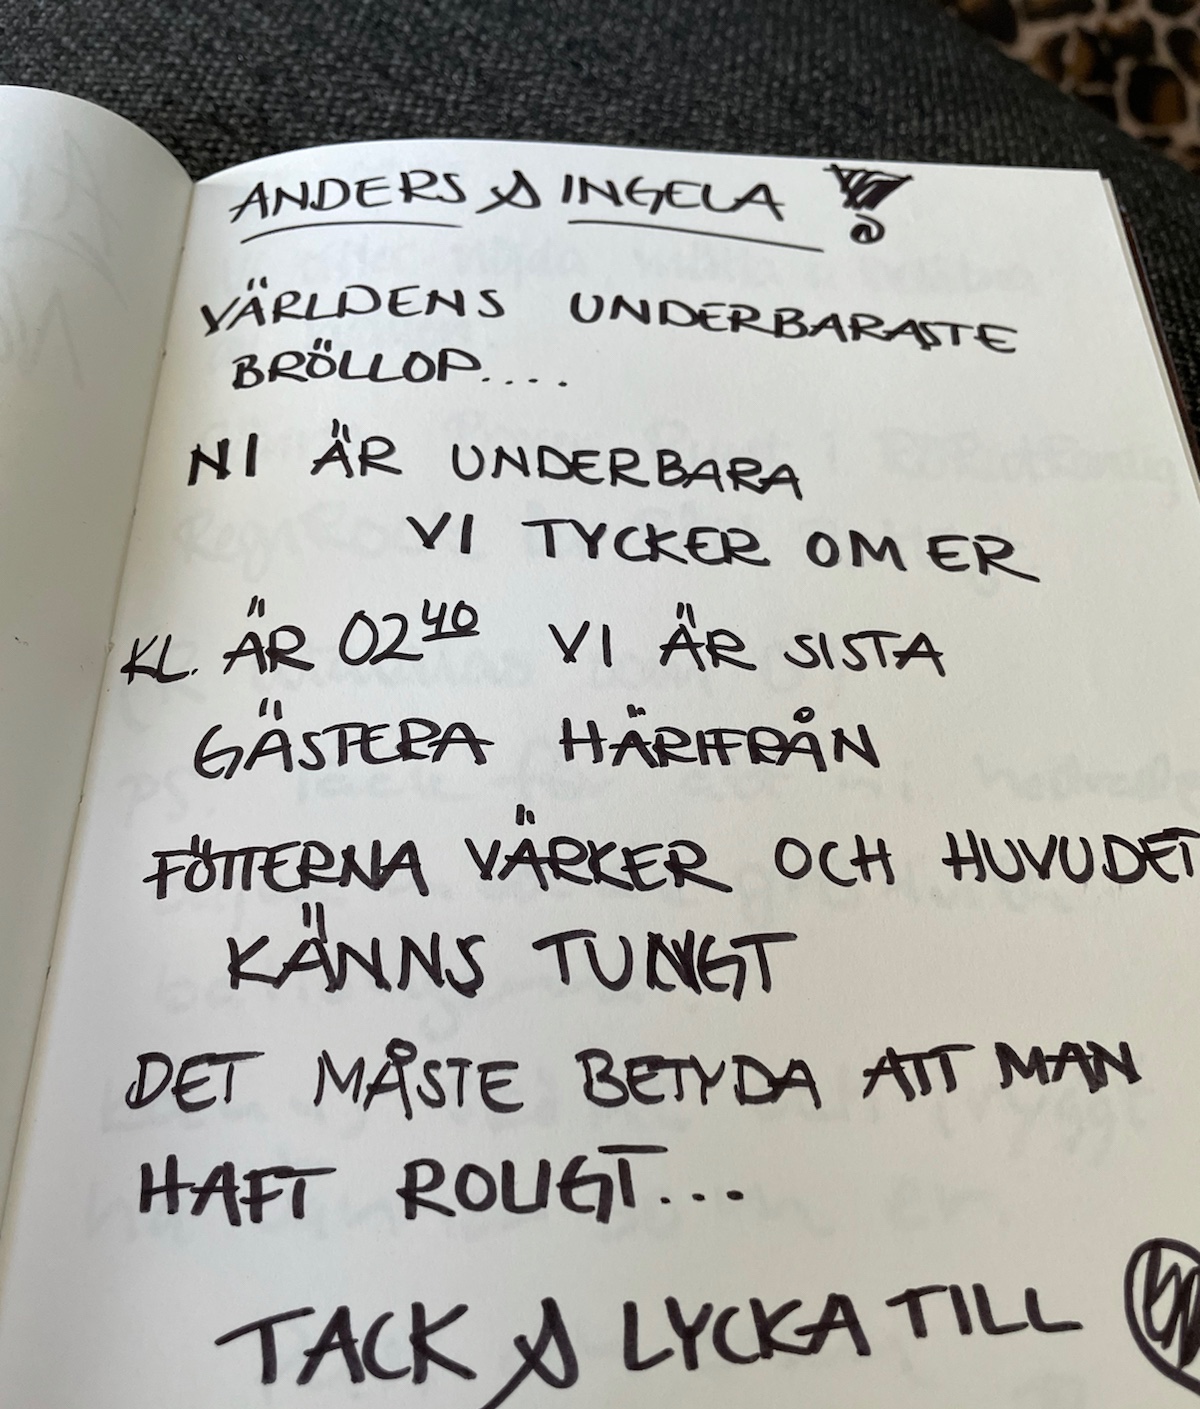 ANDERS & INGELA !
VÄRLDENS UNDERBARASTE
BRÖLLOP....
NI ÄR UNDERBARA
VI TYCKER OM ER
KL. ÄR 02⁴⁰ VI ÄR SISTA
GÄSTERA HÄRIFRÅN
FÖTTERNA VÄRKER OCH HUVUDET
KÄNNS TUNGT
DET MÅSTE BETYDA ATT MAN
HAFT ROLIGT...
TACK & LYCKA TILL